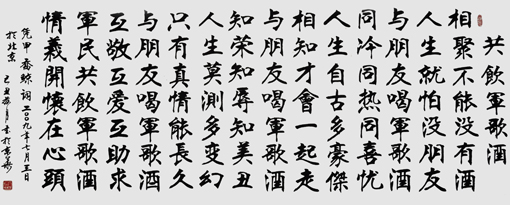 共飲軍歌酒
相聚不能没有酒
人生就怕没朋友
与朋友喝軍歌酒
同冷同热同喜忧
人生自古多豪傑
相知才會一起走
与朋友喝軍歌酒
知荣知辱知美丑
人生莫測多变幻
只有真情能長久
与朋友喝軍歌酒
互敬互爱互助求
軍民共飲軍歌酒
情義開懷在心頭
词 二〇〇九年七月五日
於北京 己丑